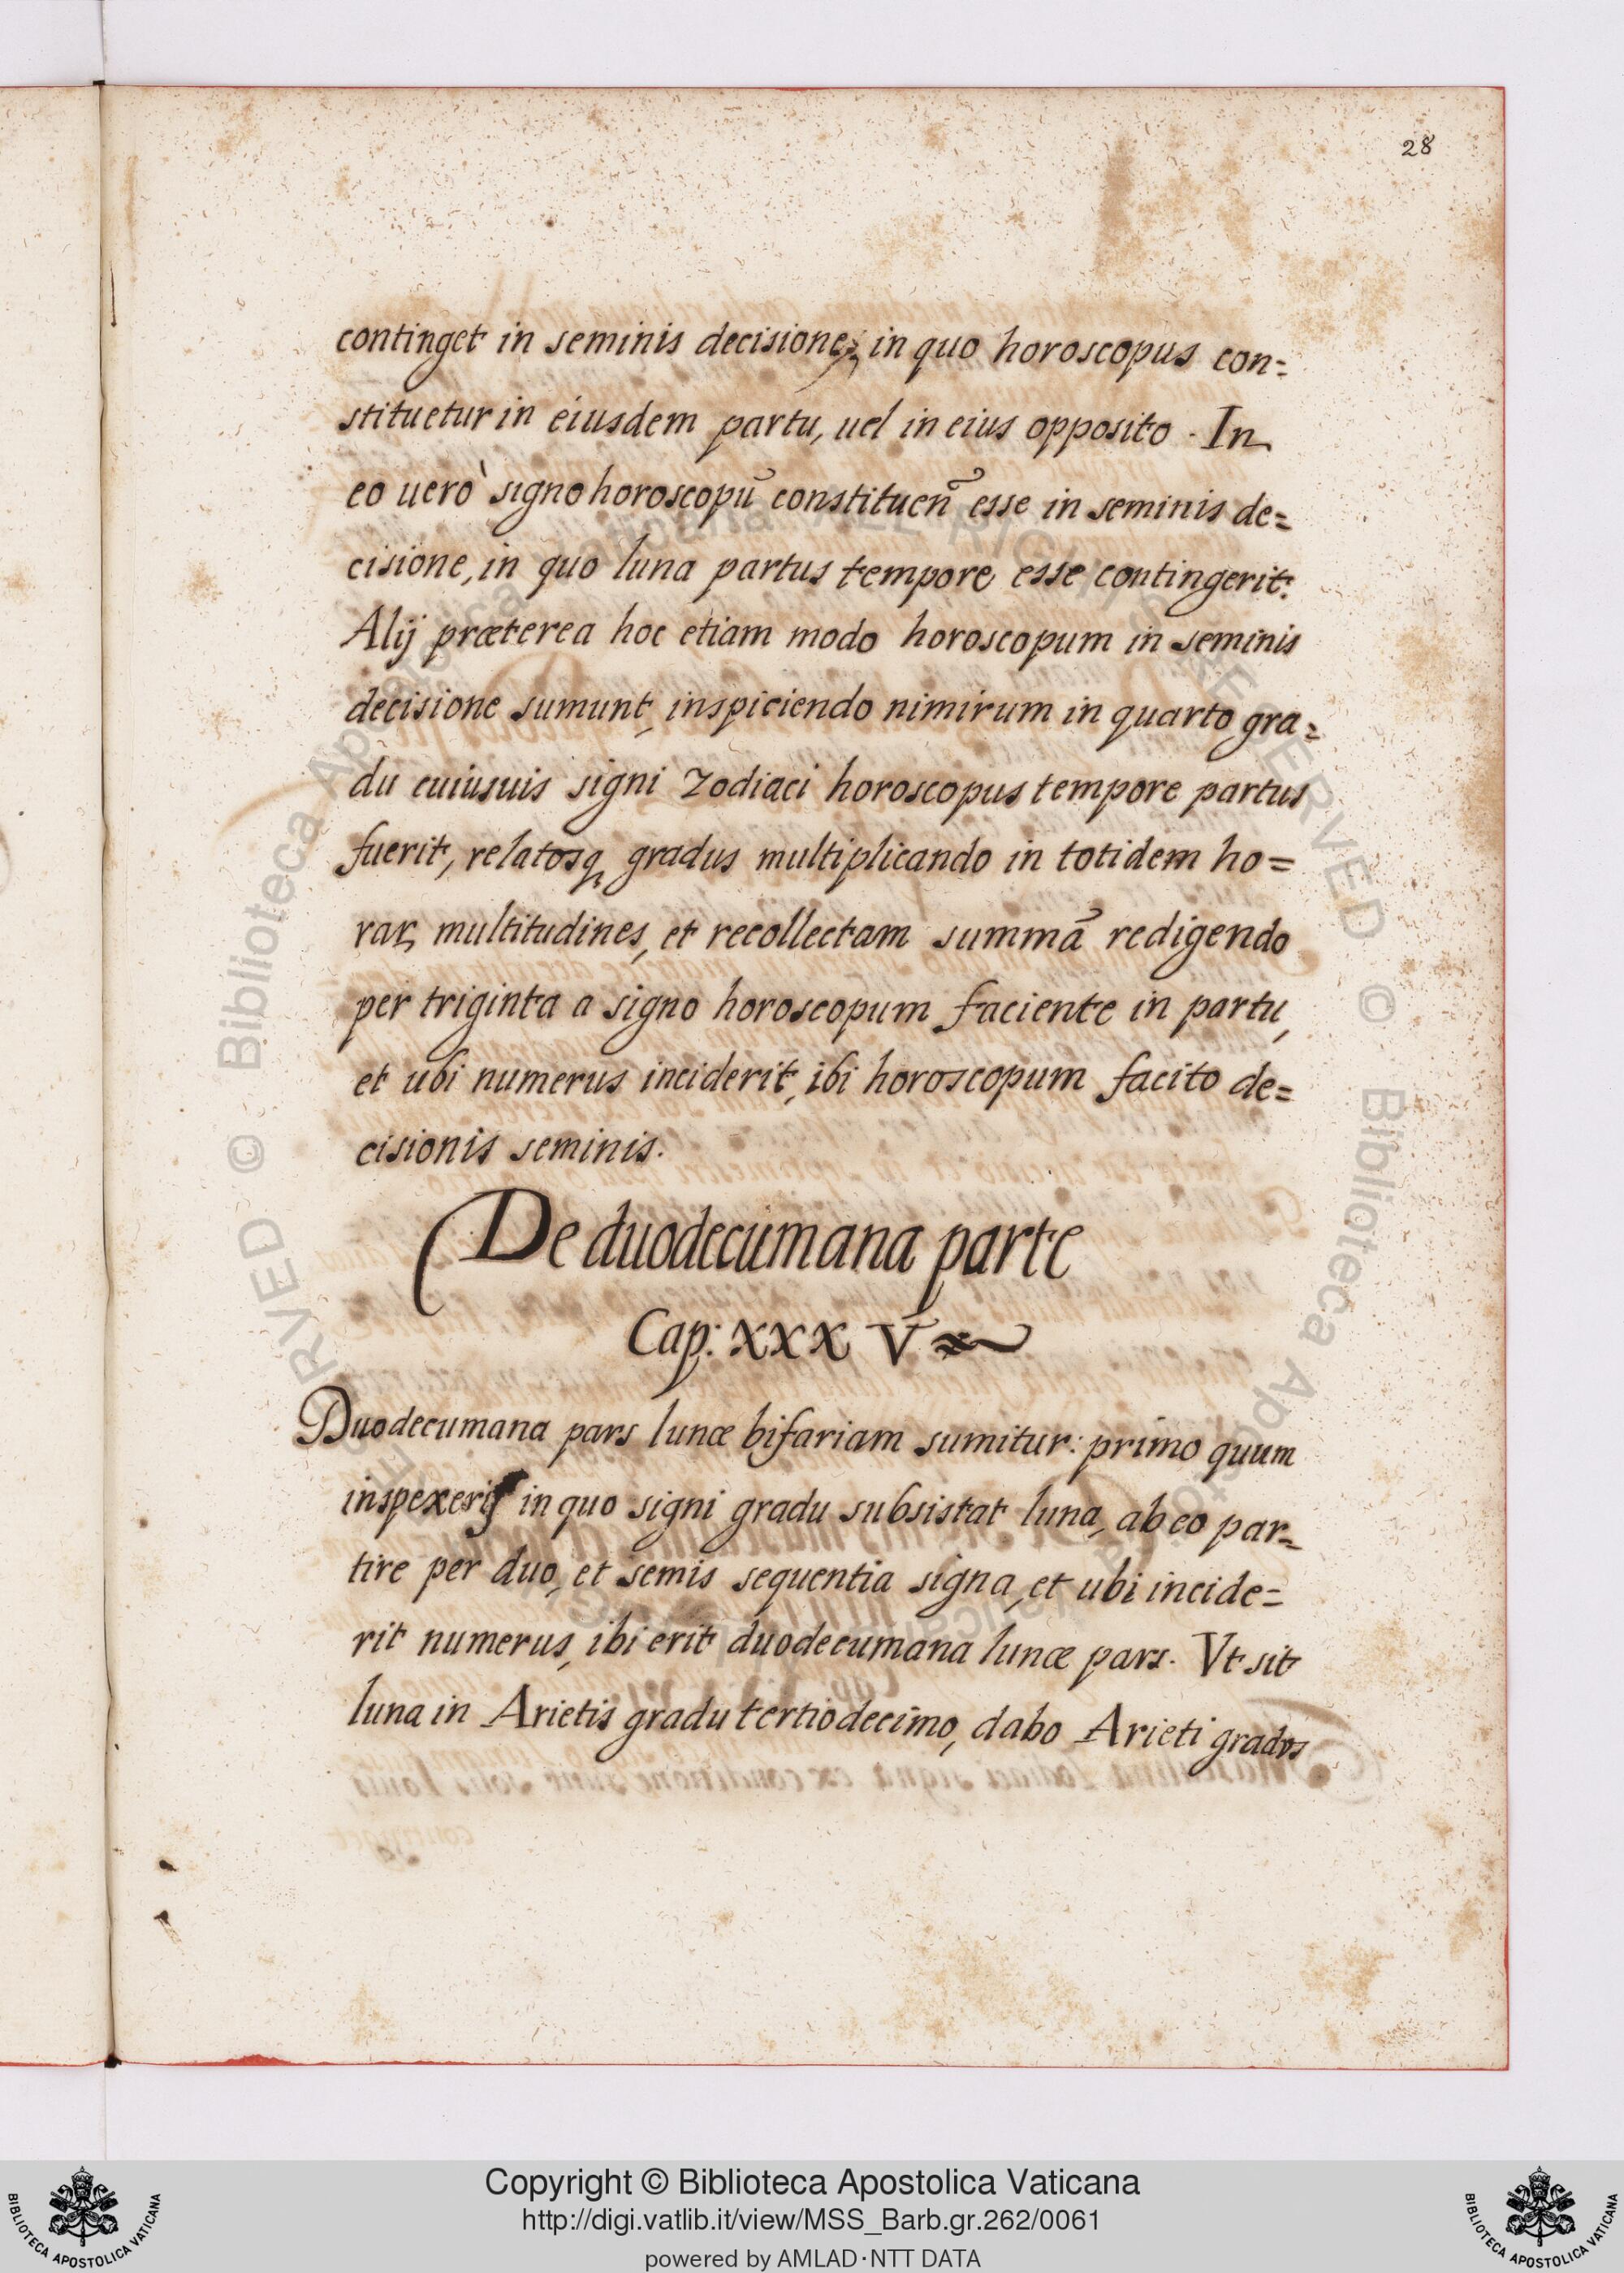 28
continget in seminis decisione, in quo horoscopus con=
stituetur in eiusdem partu, uel in eius opposito. In
eo uerò signo horoscopū constituen̄ esse in seminis de=
cisione, in quo luna partus tempore esse contingerit.
Alij præterea hoc etiam modo horoscopum in seminis
decisione sumunt, inspiciendo nimirum in quarto gra=
du cuiusuis signi Zodiaci horoscopus tempore partus
fuerit, relatosq gradus multiplicando in totidem ho=
rar, multitudines, et recollectam summā redigendo
per triginta a signo horoscopum faciente in partu,
et ubi numerus inciderit, ibi horoscopum facito de=
cisionis seminis.
De duodecumana parte
Cap: XXX V
Duodecumana pars lunæ bifariam sumitur: primo quum
inspexeris in quo signi gradu subsistat luna, ab eo par=
tire per duo, et semis sequentia signa, et ubi incide=
rit numerus, ibi erit duodecumana lunæ pars. Vt sit
luna in Arietis gradu tertiodecimo, dabo Arieti gradus
Copyright © Biblioteca Apostolica Vaticana
http://digi.vatlib.it/view/MSS_Barb.gr.262/0061
powered by AMLAD·NTT DATA
BIBLIOTECA APOSTOLICA VATICANA
BIBLIOTECA APOSTOLICA VATICANA